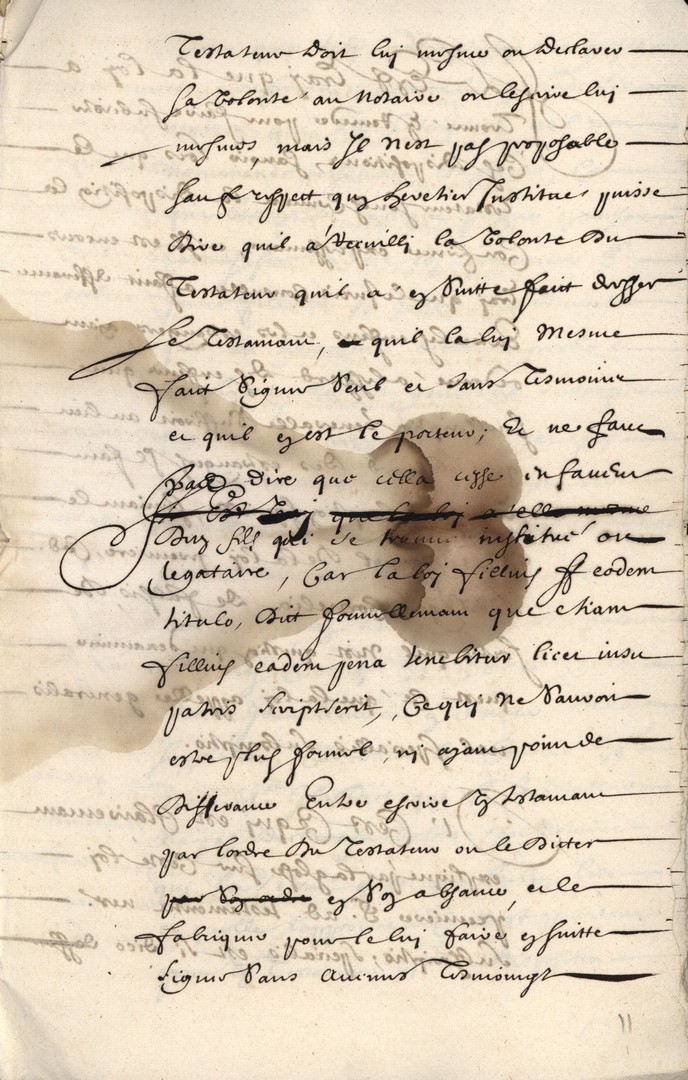 Testateur doit luj mesme ou declarer
sa volonté au Notaire ou lescrire luj
mesmes, mais Il nest pas proposable
sauf respect quy heretier Institué puisse
dire quil a receuilli la volonté du
Testateur quil a ey suitte faict dresser
le Testamant, quil la luj mesme
faict signer seul et sans Tesmoins
et quil ey est le porteur; Et ne faut
pas dire que cella cesse en faveur
Duy fils qui se trouve institué ou
legataire, Car la loj fillius ff eodem
titulo, Dict formellemant que etiam
fillius eadem pena tenebitur licet iussu
patris scripserit, Ce qui ne sauroit
estre plus formel, nj ayant point de
differance Entre escrire ey testamant
par lordre du Testateur ou le dicter
ey soy absance, et le
fabriquer pour le luj faire ey suitte
signer sans aucuns Tesmoingt
11